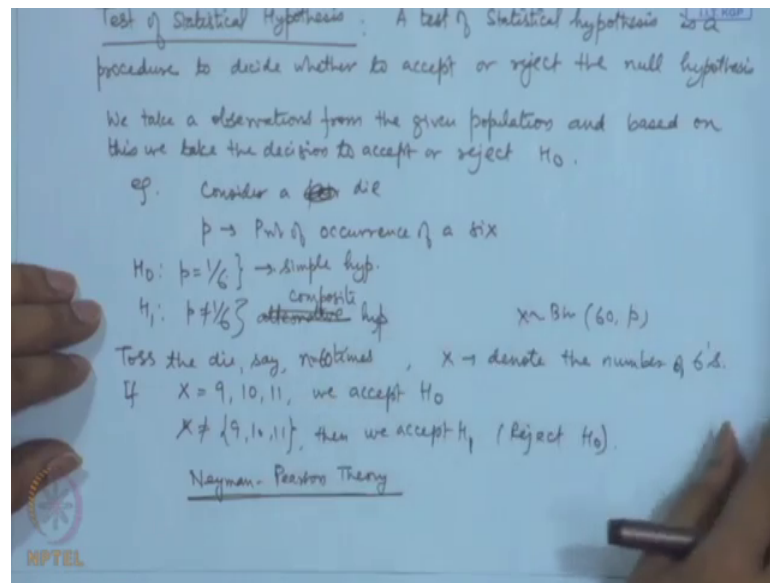 Test of Statistical Hypothesis : A test of Statistical hypothesis is a
procedure to decide whether to accept or reject the null hypothesis
We take a observations from the given population and based on
this we take the decision to accept or reject H₀.
eg. Consider a die
p → Prob of occurrence of a six
H₀: p = 1/6 } → simple hyp.
H₁: p ≠ 1/6 } composite hyp X ~ Bin (60, p)
Toss the die, say, times, X → denote the number of 6's.
If X = 9, 10, 11, we accept H₀
X ≠ {9, 10, 11}, then we accept H₁ (Reject H₀).
Neyman-Pearson Theory
NPTEL